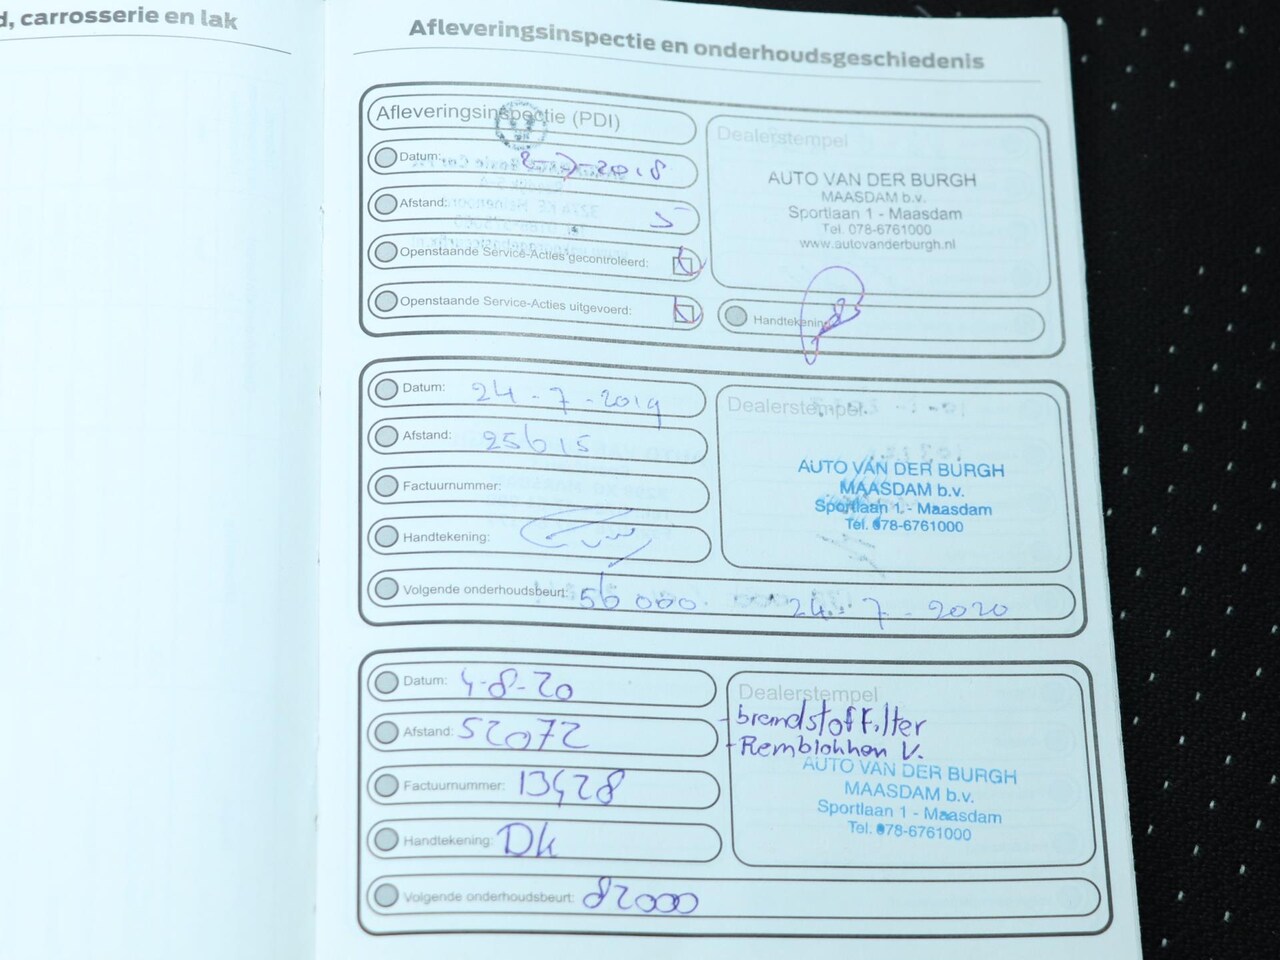 d, carrosserie en lak
Afleveringsinspectie en onderhoudsgeschiedenis
Afleveringsinspectie (PDI)
Datum: 2-7-2018
Afstand: 5
Openstaande Service-Acties gecontroleerd:
Openstaande Service-Acties uitgevoerd:
Dealerstempel
AUTO VAN DER BURGH
MAASDAM b.v.
Sportlaan 1 - Maasdam
Tel. 078-6761000
www.autovanderburgh.nl
Handtekening
Datum: 24-7-2019
Afstand: 25615
Factuurnummer:
Handtekening:
Volgende onderhoudsbeurt: 56000. 24-7-2020
Dealerstempel
AUTO VAN DER BURGH
MAASDAM b.v.
Sportlaan 1 - Maasdam
Tel. 078-6761000
Datum: 4-8-20
Afstand: 52072
Factuurnummer: 13428
Handtekening: Dk
Volgende onderhoudsbeurt: 82000
Dealerstempel
- brandstoffilter
- Remblokken V.
AUTO VAN DER BURGH
MAASDAM b.v.
Sportlaan 1 - Maasdam
Tel. 078-6761000